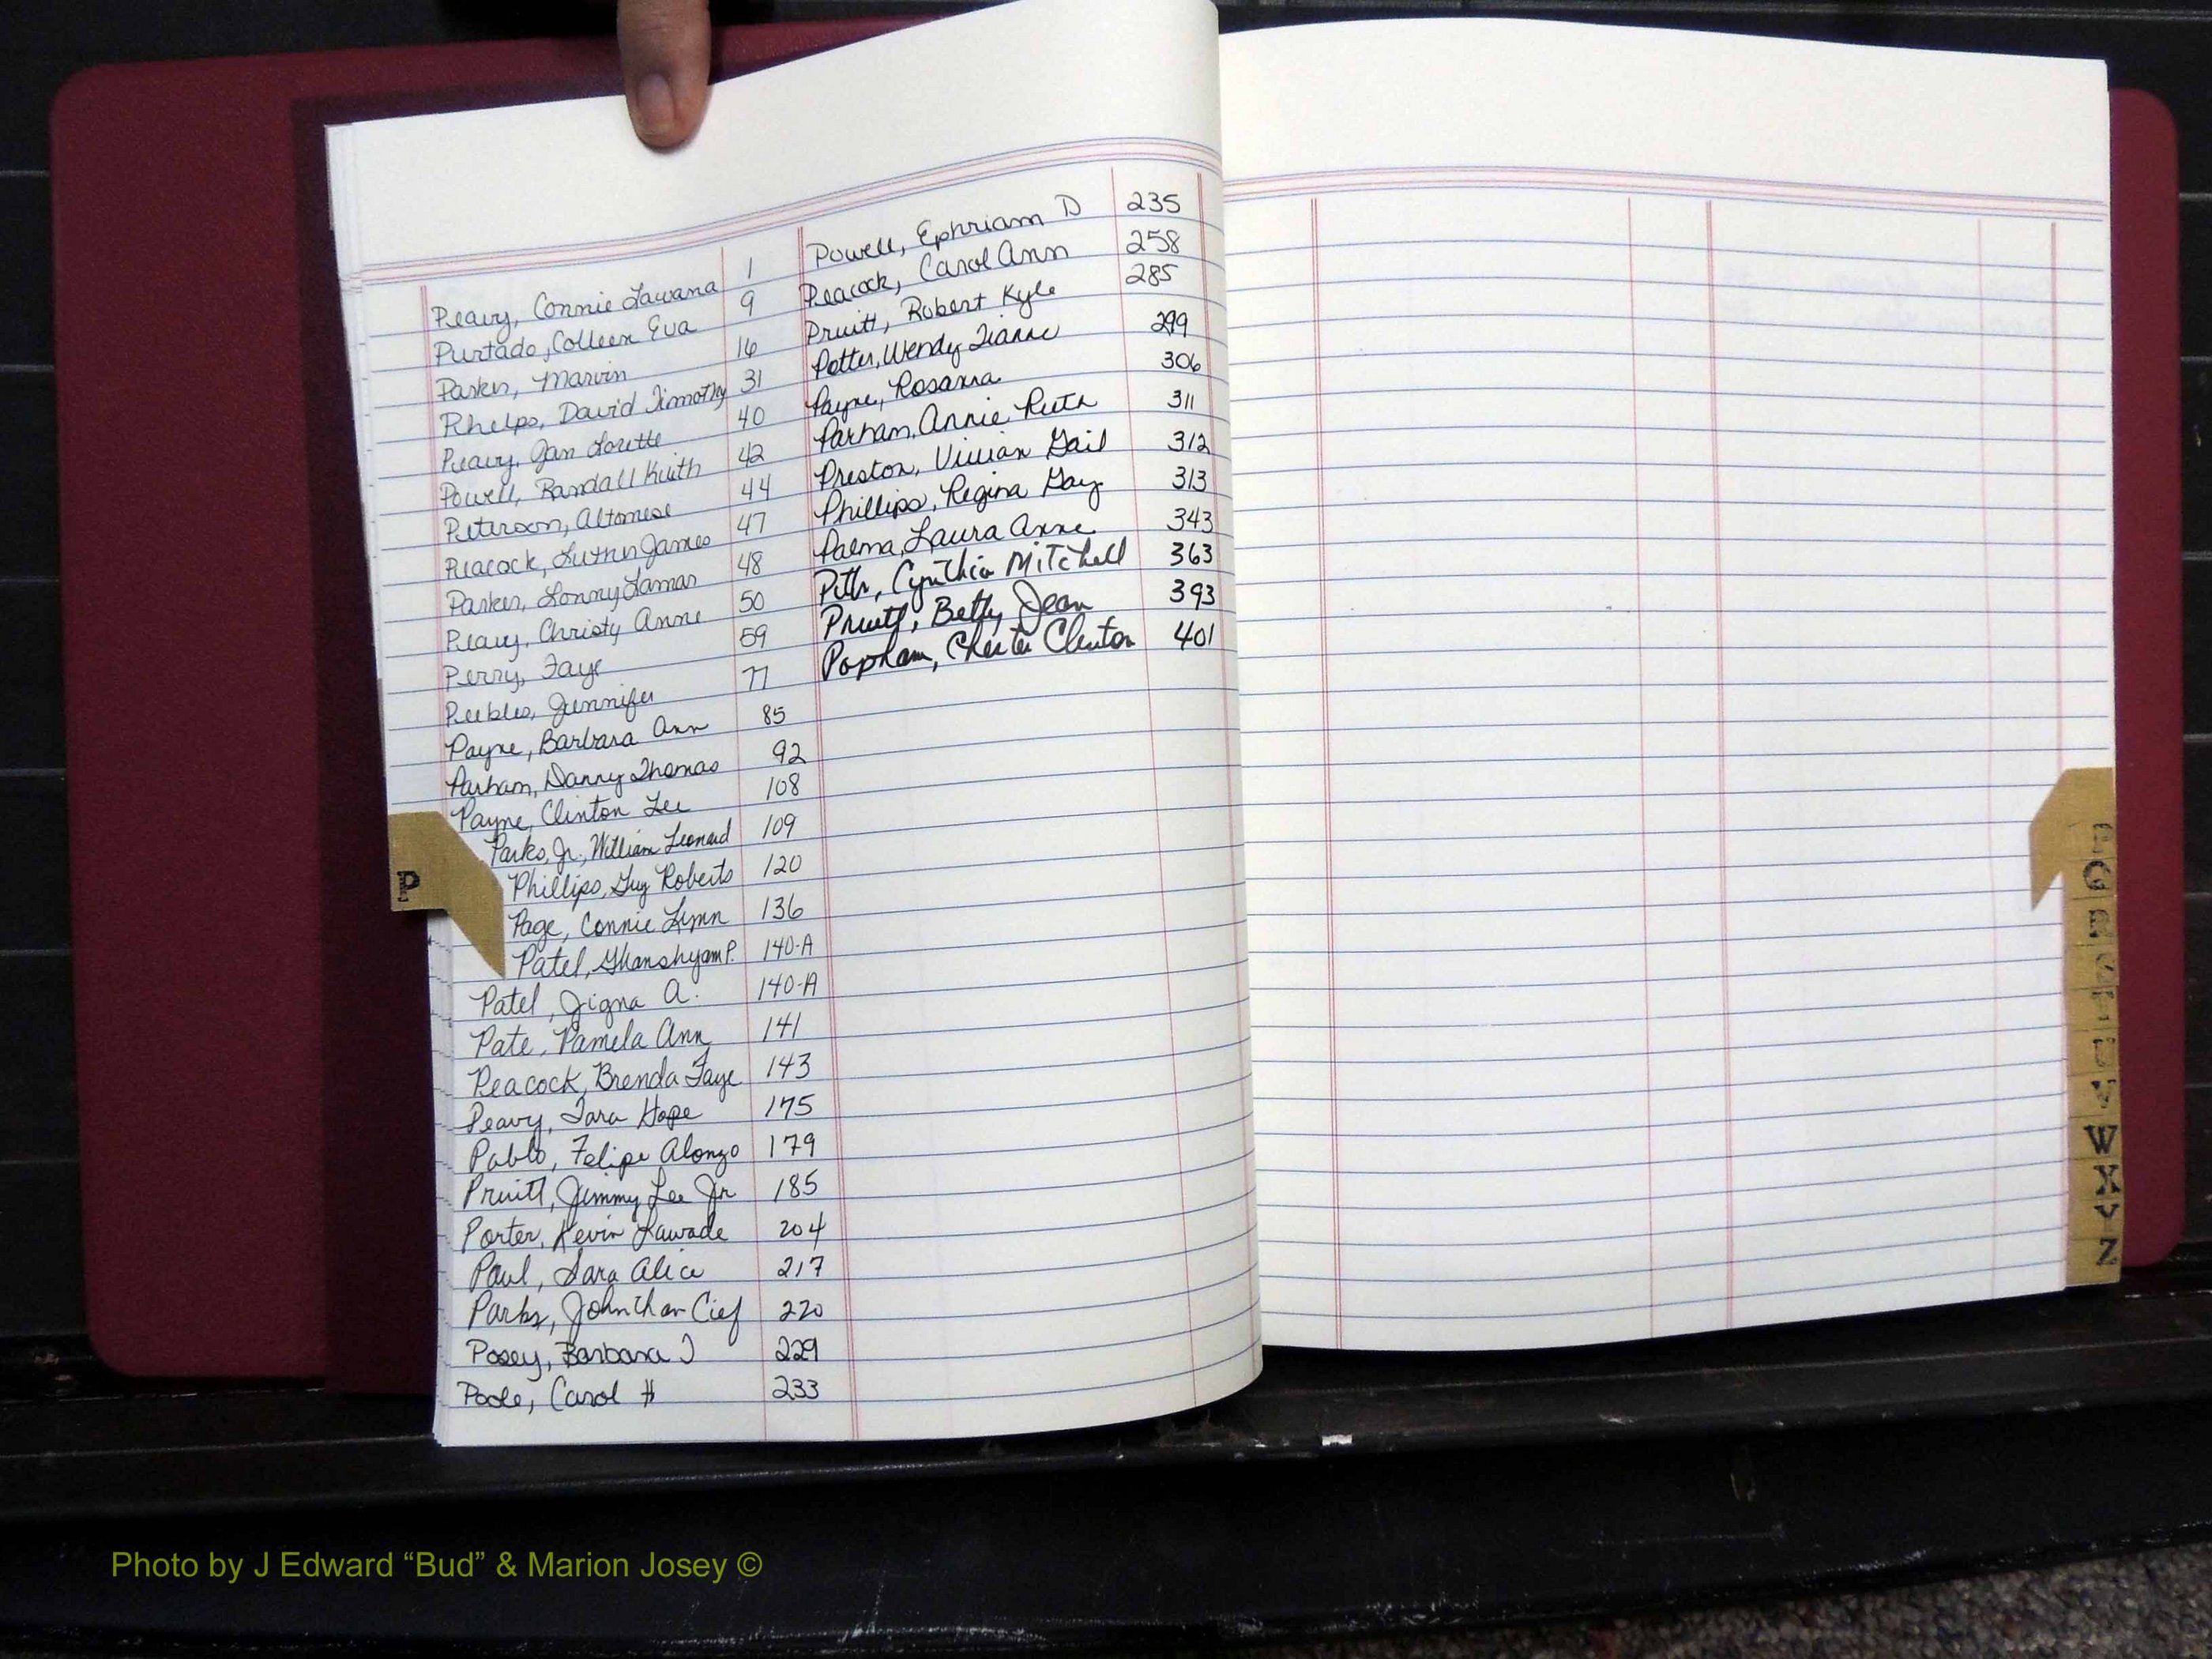 Peavy, Connie Lawana 1
Purtado, Colleen Eva 9
Parker, Marvin 16
Phelps, David Timothy 31
Peavy, Jan Lorette 40
Powell, Randall Keith 42
Peterson, Altomese 44
Peacock, Luther James 47
Parker, Lonny Lamar 48
Peavy, Christy Anne 50
Perry, Faye 59
Peebles, Jennifer 77
Payne, Barbara Ann 85
Parham, Danny Thomas 92
Payne, Clinton Lee 108
Parks, Jr., William Leonard 109
Phillips, Guy Roberts 120
Page, Connie Lynn 136
Patel, Ghanshyam P. 140-A
Patel, Jigna A. 140-A
Pate, Pamela Ann 141
Peacock, Brenda Faye 143
Peavy, Tara Hope 175
Pablo, Felipe Alonzo 179
Pruitt, Jimmy Lee Jr 185
Porter, Kevin Lawade 204
Paul, Sara Alice 217
Parks, Johnthan Cief 220
Posey, Barbara J 229
Poole, Carol H 233
Powell, Ephriam D 235
Peacock, Carol Ann 258
Pruitt, Robert Kyle 285
Potter, Wendy Dianne 299
Payne, Rosanna 306
Parham, Annie Ruth 311
Preston, Vivian Gail 312
Phillips, Regina Gay 313
Palma, Laura Anne 343
Cynthia Mitchell 363
Pruitt, Betty Jean 393
Popham, Chester Clinton 401
P
P
Q
R
S
T
U
V
W
X
Y
Z
Photo by J Edward “Bud” & Marion Josey ©